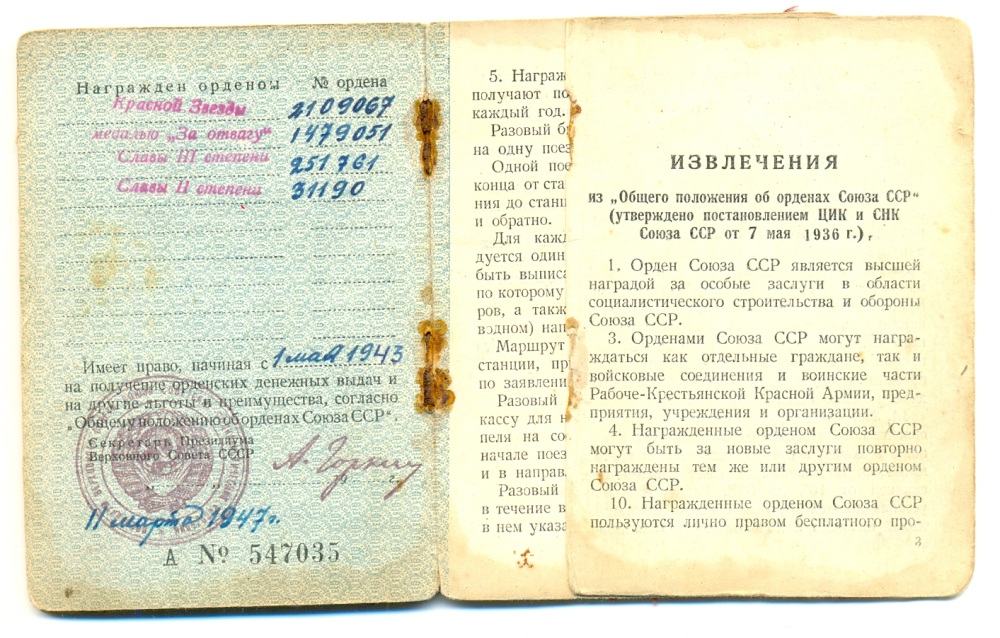 Награжден орденом № ордена
Красной Звезды 2109067
медалью „За отвагу“ 1479051
Славы III степени 251761
Славы II степени 31190
Имеет право, начиная с 1 мая 1943
на получение орденских денежных выдач и
на другие льготы и преимущества, согласно
„Общему положению об орденах Союза ССР“.
Секретарь Президиума
Верховного Совета СССР
А. Горкин
11 марта 1947 г.
А № 547035
5. Награж
получают по
каждый год.
Разовый б
на одну поез
Одной пое
конца от ста
ния до станц
и обратно.
Для кажд
дуется один
быть выписа
по которому
ров, а такж
водном) нап
Маршрут
станции, пр
по заявлени
Разовый
кассу для н
пеля на со
начале поез
и в направ
Разовый
в течение в
в нем указа
ИЗВЛЕЧЕНИЯ
из „Общего положения об орденах Союза ССР“
(утверждено постановлением ЦИК и СНК
Союза ССР от 7 мая 1936 г.).
1. Орден Союза ССР является высшей
наградой за особые заслуги в области
социалистического строительства и обороны
Союза ССР.
3. Орденами Союза ССР могут награ-
ждаться как отдельные граждане, так и
войсковые соединения и воинские части
Рабоче-Крестьянской Красной Армии, пред-
приятия, учреждения и организации.
4. Награжденные орденом Союза ССР
могут быть за новые заслуги повторно
награждены тем же или другим орденом
Союза ССР.
10. Награжденные орденом Союза ССР
пользуются лично правом бесплатного про-
3